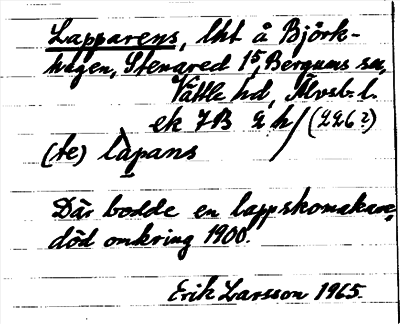 Lapparens, lht å Björk-
hagen, Stenared 1⁵, Bergums sn,
Vättle hd, Älvsb. l.
ek 7B 2 h/(226?)
(te) lapans
Där bodde en lappskomakare,
död omkring 1900.
Erik Larsson 1965.